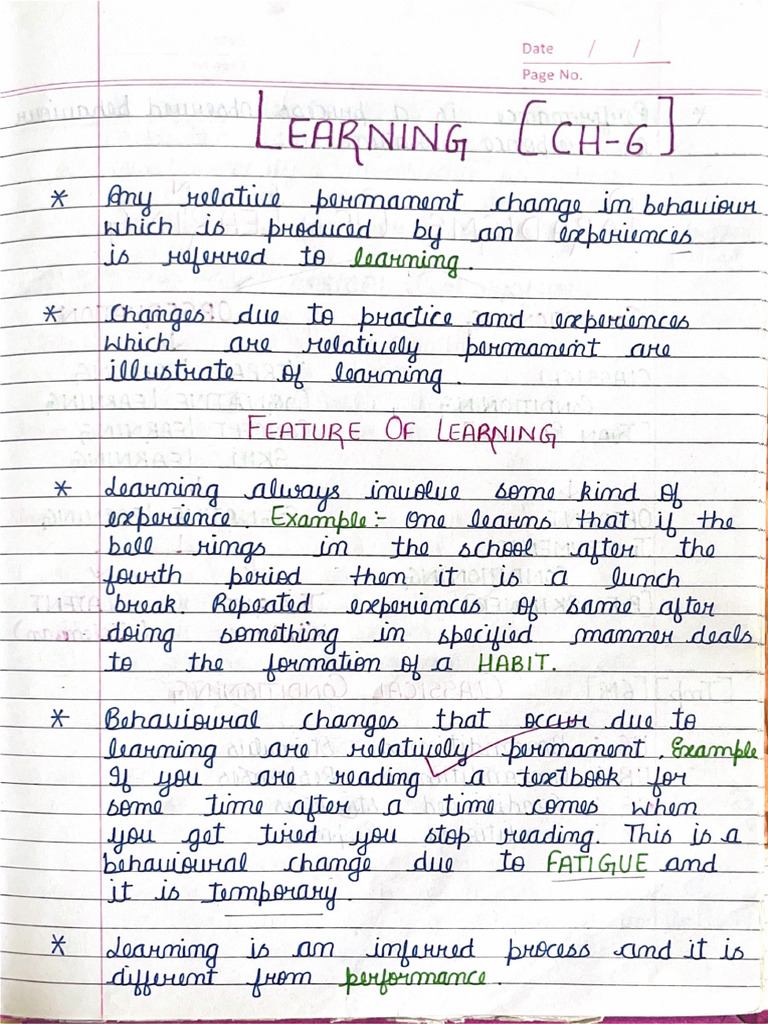 Date / /
Page No.
LEARNING [CH-6]
* Any relative permanent change in behaviour
which is produced by an experiences
is referred to learning.
* Changes due to practice and experiences
which are relatively permanent are
illustrate of learning.
FEATURE OF LEARNING
* Learning always involve some kind of
experience Example:- One learns that if the
bell rings in the school after the
fourth period then it is a lunch
break. Repeated experiences of same after
doing something in specified manner deals
to the formation of a HABIT.
* Behavioural changes that occur due to
learning are relatively permanent. Example
If you are reading a textbook for
some time after a time comes when
you get tired you stop reading. This is a
behavioural change due to FATIGUE and
it is temporary.
* Learning is an inferred process and it is
different from performance.